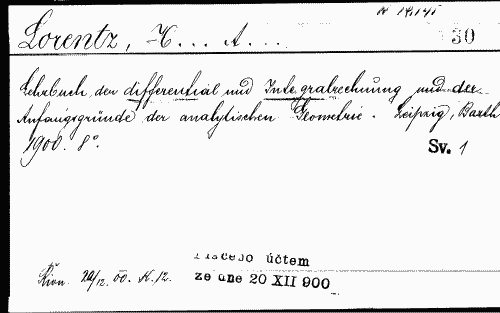 Lorentz, H... A...
30
Lehrbuch der differential und Integralrechnung und der
Anfangsgründe der analytischen Geometrie. Leipzig, Barth
1900. 8°.
Sv. 1
účtem
ze dne 20 XII 900
Řivn. 20/12. 00. K. 12.